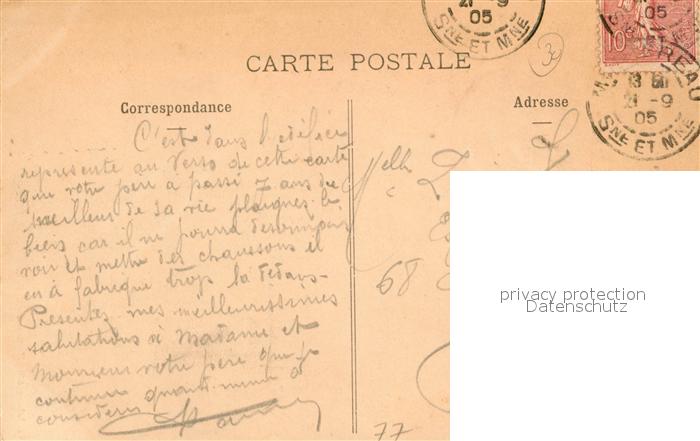 21-9
05
SNE ET MNE
3
05
10
MONTEREAU
13
21-9
05
SNE ET MNE
CARTE POSTALE
Correspondance
Adresse
C'est dans l'édifice
représenté au verso de cette carte
que votre père a passé 7 ans du
meilleur de sa vie plaignez le
bien car il ne pourra désormais
voir et mettre des chaussons il
en a fabriqué trop là dedans-
Présentez mes meilleurissimes
salutations à Madame et
Monsieur votre père que je
continue quand même à
considérer
Melle D
68
77
privacy protection
Datenschutz